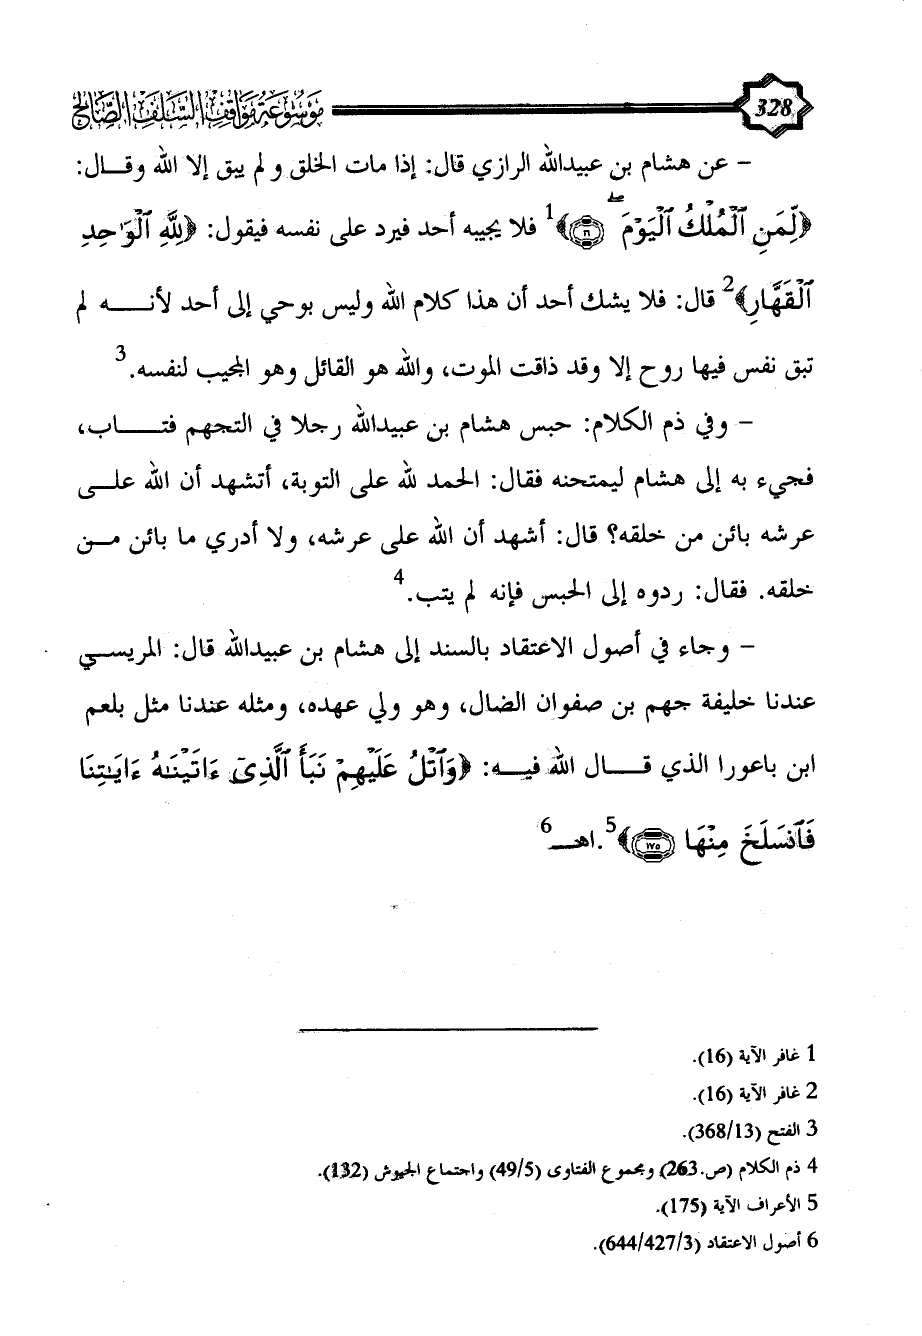 328
موسوعة مواقف السلف الصالح
– عن هشام بن عبيدالله الرازي قال: إذا مات الخلق و لم يبق إلا الله وقـــال:
﴿لِّمَنِ ٱلْمُلْكُ ٱلْيَوْمَۖ ١٦﴾1 فلا يجيبه أحد فيرد على نفسه فيقول: ﴿لِلَّهِ ٱلْوَٰحِدِ
ٱلْقَهَّارِ﴾2 قال: فلا يشك أحد أن هذا كلام الله وليس بوحي إلى أحد لأنـــــه لم
تبق نفس فيها روح إلا وقد ذاقت الموت، والله هو القائل وهو المجيب لنفسه.3
– وفي ذم الكلام: حبس هشام بن عبيدالله رجلا في التجهم فتـــــاب،
فجيء به إلى هشام ليمتحنه فقال: الحمد لله على التوبة، أتشهد أن الله علــى
عرشه بائن من خلقه؟ قال: أشهد أن الله على عرشه، ولا أدري ما بائن مــن
خلقه. فقال: ردوه إلى الحبس فإنه لم يتب.4
– وجاء في أصول الاعتقاد بالسند إلى هشام بن عبيدالله قال: المريســي
عندنا خليفة جهم بن صفوان الضال، وهو ولي عهده، ومثله عندنا مثل بلعم
ابن باعورا الذي قـــــال الله فيـــه: ﴿وَٱتْلُ عَلَيْهِمْ نَبَأَ ٱلَّذِىٓ ءَاتَيْنَٰهُ ءَايَٰتِنَا
فَٱنسَلَخَ مِنْهَا ١٧٥﴾5.اهـــ6
1 غافر الآية (16).
2 غافر الآية (16).
3 الفتح (368/13).
4 ذم الكلام (ص.263) ومجموع الفتاوى (49/5) واجتماع الجيوش (132).
5 الأعراف الآية (175).
6 أصول الاعتقاد (644/427/3).